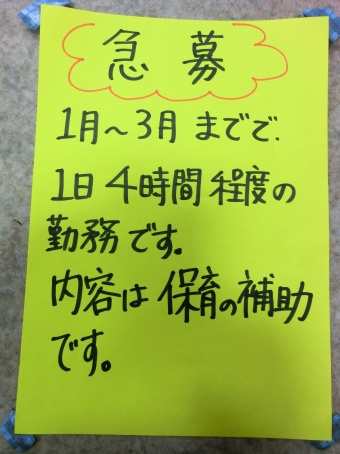 急募
1月～3月 までで、
1日 4時間 程度の
勤務です。
内容は 保育の補助
です。